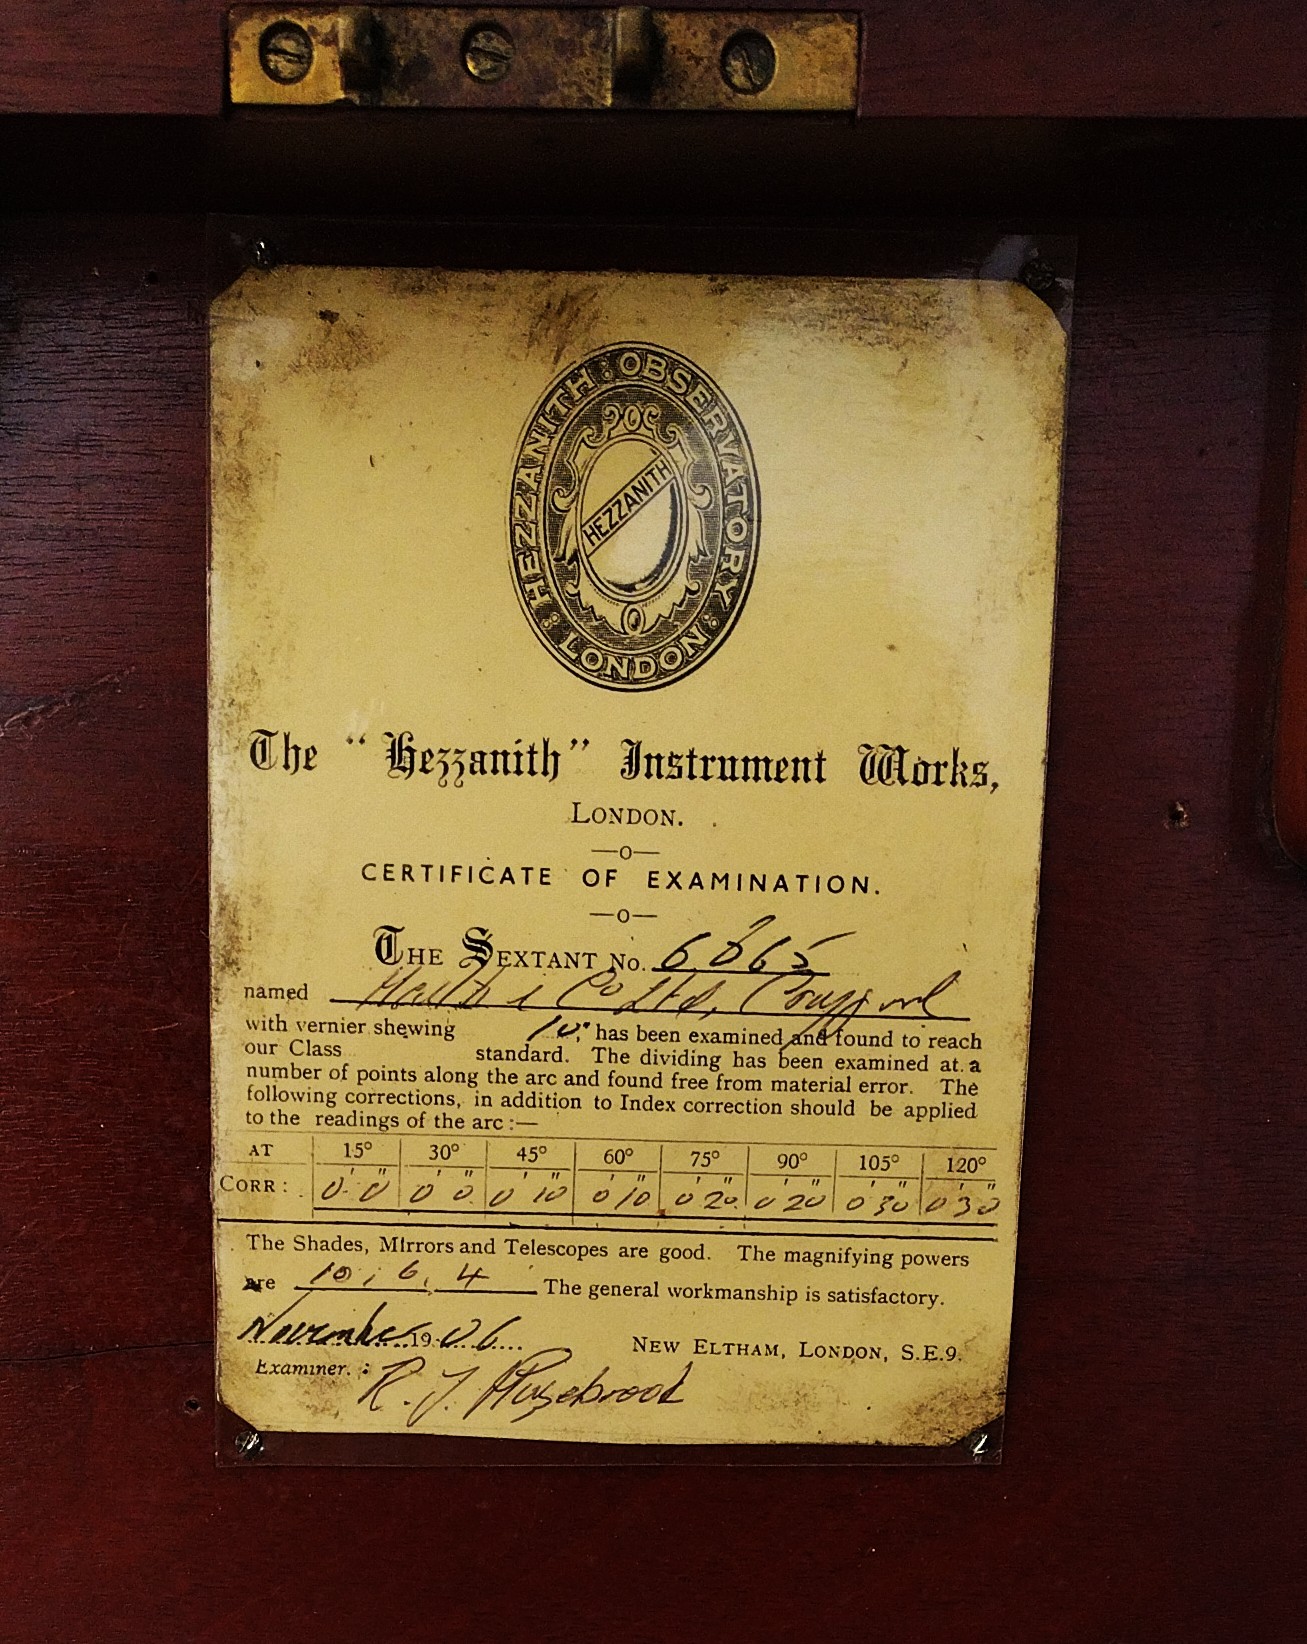 HEZZANITH : OBSERVATORY : LONDON :
HEZZANITH
The "Hezzanith" Instrument Works,
LONDON.
—o—
CERTIFICATE OF EXAMINATION.
—o—
THE SEXTANT No. 6865
named & Co Ltd,
with vernier shewing 10" has been examined and found to reach
our Class standard. The dividing has been examined at a
number of points along the arc and found free from material error. The
following corrections, in addition to Index correction should be applied
to the readings of the arc :—
AT 15° 30° 45° 60° 75° 90° 105° 120°
CORR : 0' 0" 0' 0" 0' 10" 0' 10" 0' 20" 0' 20" 0' 30" 0' 30"
The Shades, Mirrors and Telescopes are good. The magnifying powers
are 10, 6, 4 The general workmanship is satisfactory.
November 1906 NEW ELTHAM, LONDON, S.E.9.
Examiner. : R. J.